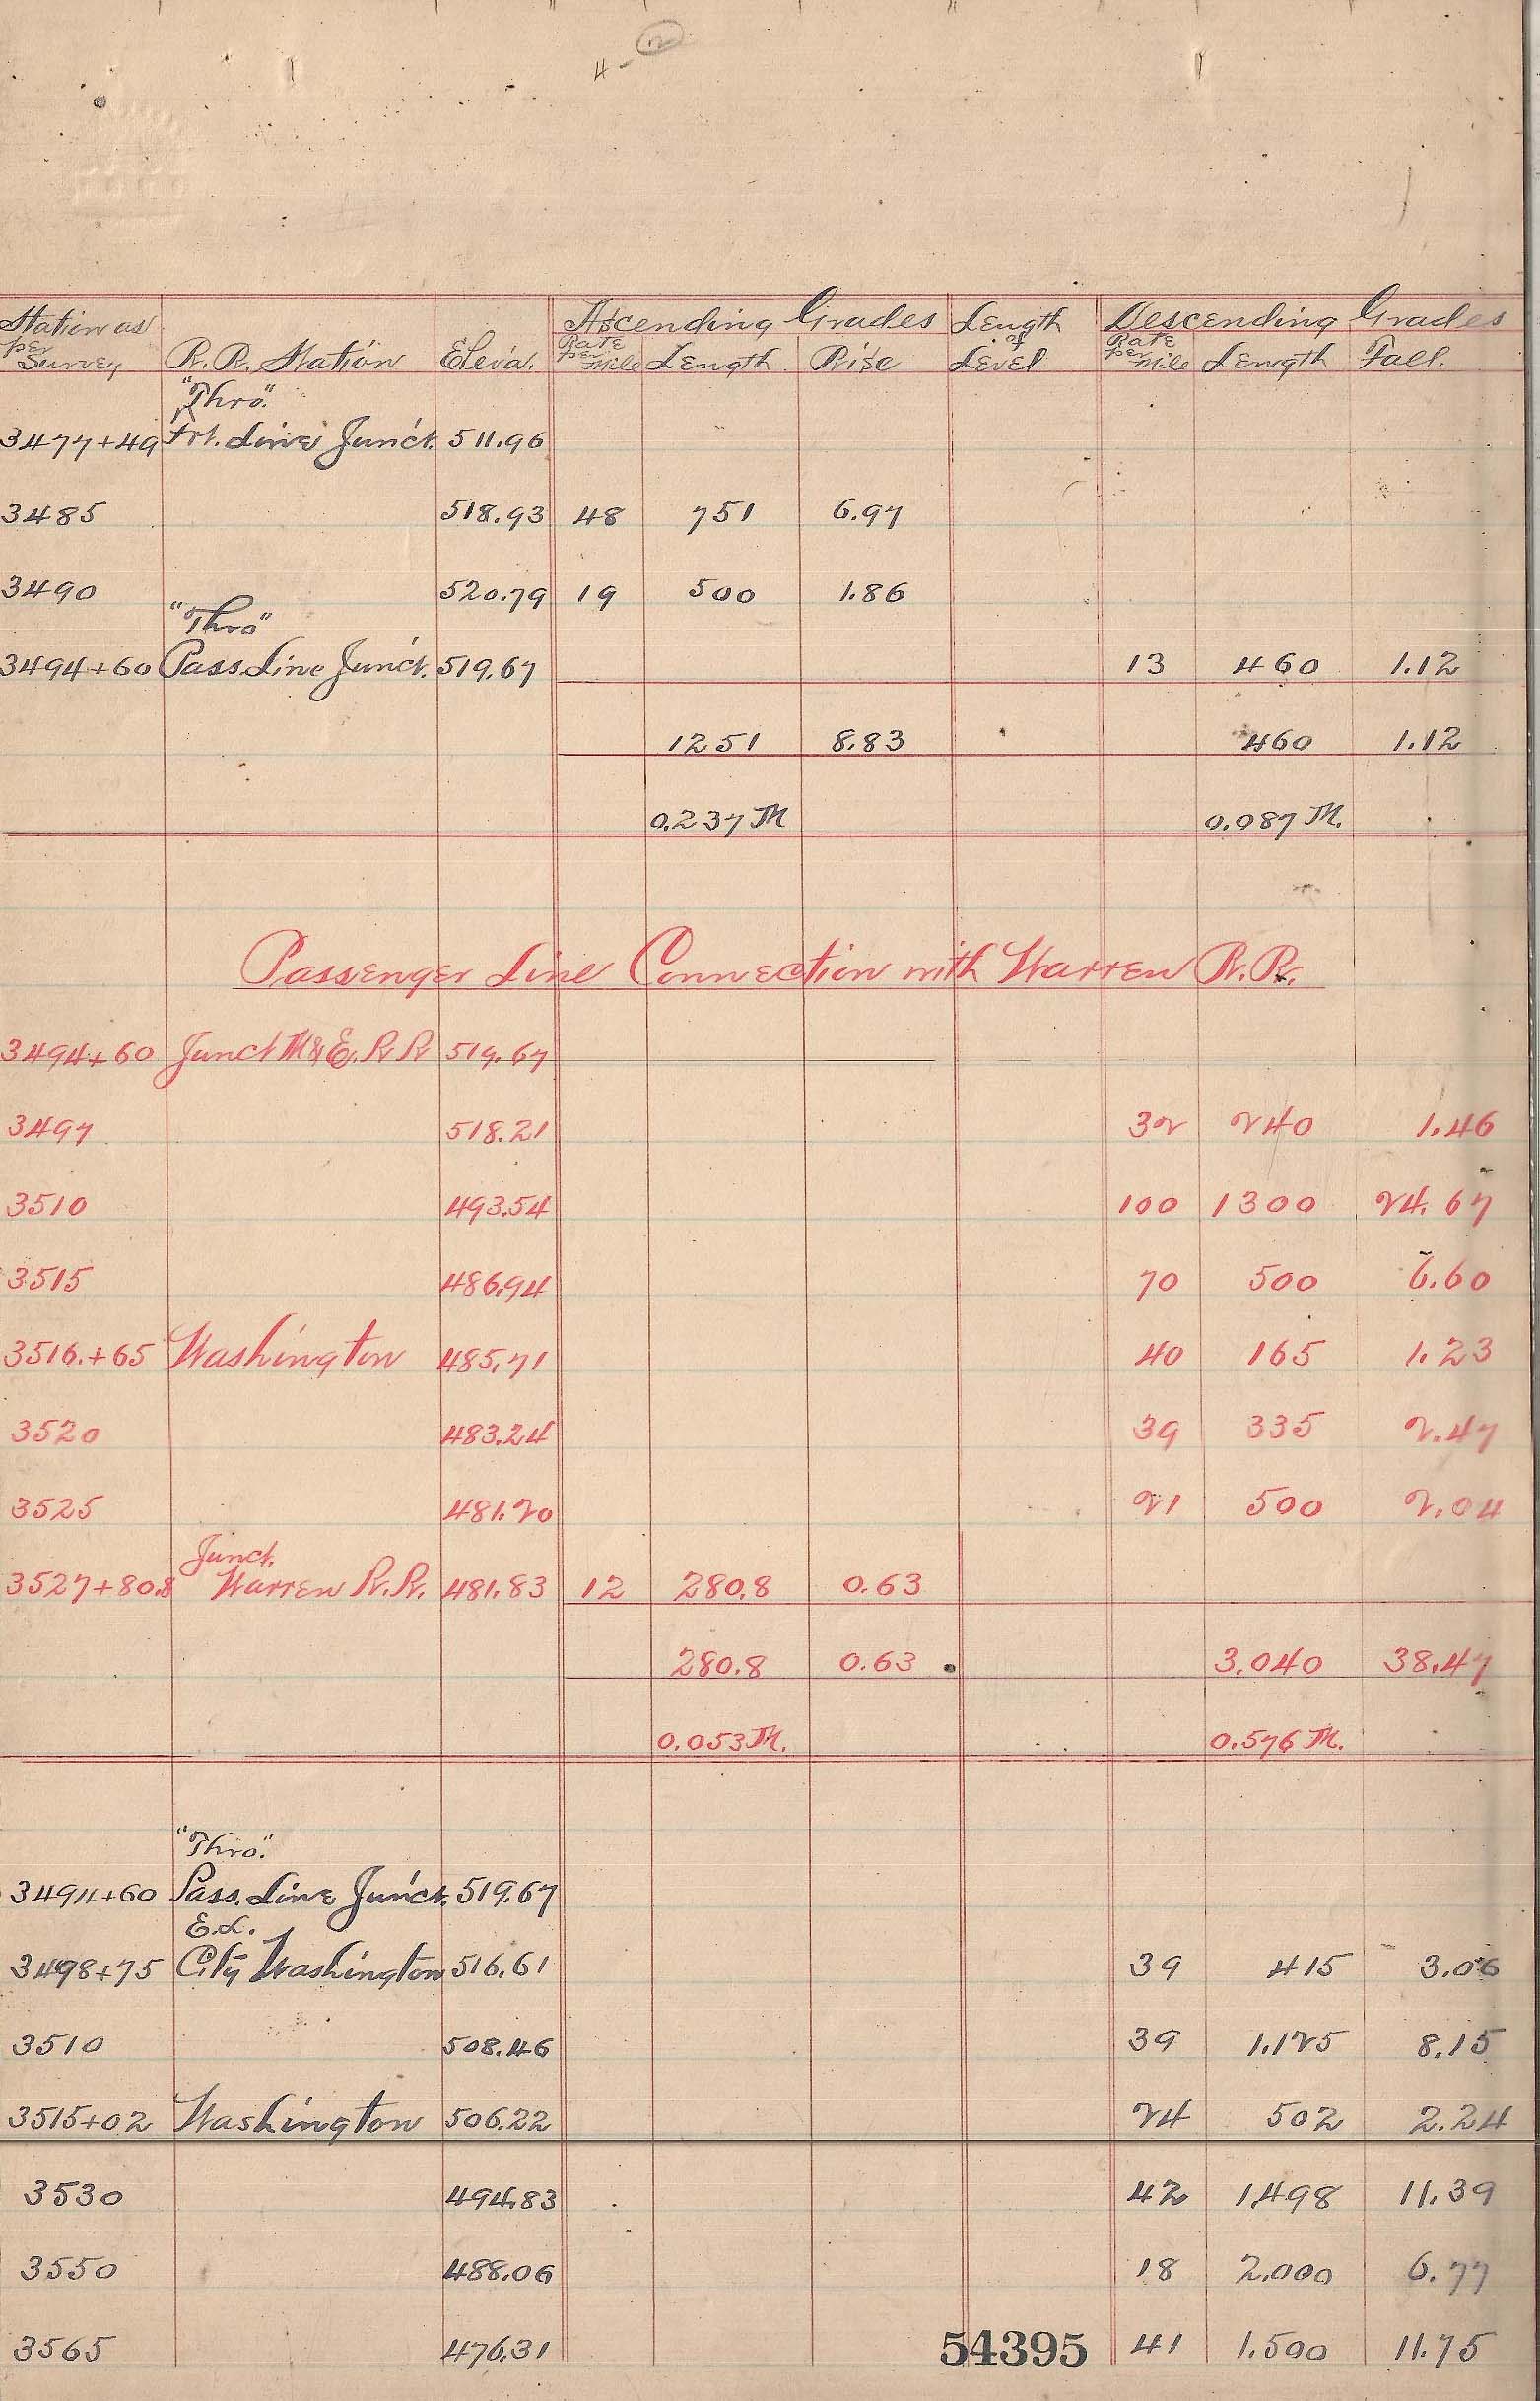 4 -
Station as per Survey R.R. Station Eleva. Ascending Grades Length of Level Descending Grades
Rate per Mile Length Rise Rate per Mile Length Fall.
"Thro".
3477+49 Frt. Line Junct. 511.96
3485 518.93 48 751 6.97
3490 520.79 19 500 1.86
"Thro"
3494+60 Pass Line Junct. 519.67 13 460 1.12
1251 8.83 460 1.12
0.237 M 0.087 M.
Passenger Line Connection with Warren R.R.
3494+60 Junct M&E. R R 519.67
3497 518.21 32 240 1.46
3510 493.54 100 1300 24.67
3515 486.94 70 500 6.60
3516.+65 Washington 485.71 40 165 1.23
3520 483.24 39 335 2.47
3525 481.20 21 500 2.04
Junct.
3527+80.8 Warren R.R. 481.83 12 280.8 0.63
280.8 0.63 3.040 38.47
0.053 M. 0.576 M.
"Thro".
3494+60 Pass. Line Junct. 519.67
E.L.
3498+75 City Washington 516.61 39 415 3.06
3510 508.46 39 1.125 8.15
3515+02 Washington 506.22 24 502 2.24
3530 494.83 42 1,498 11.39
3550 488.06 18 2.000 6.77
3565 476.31 54395 41 1.500 11.75